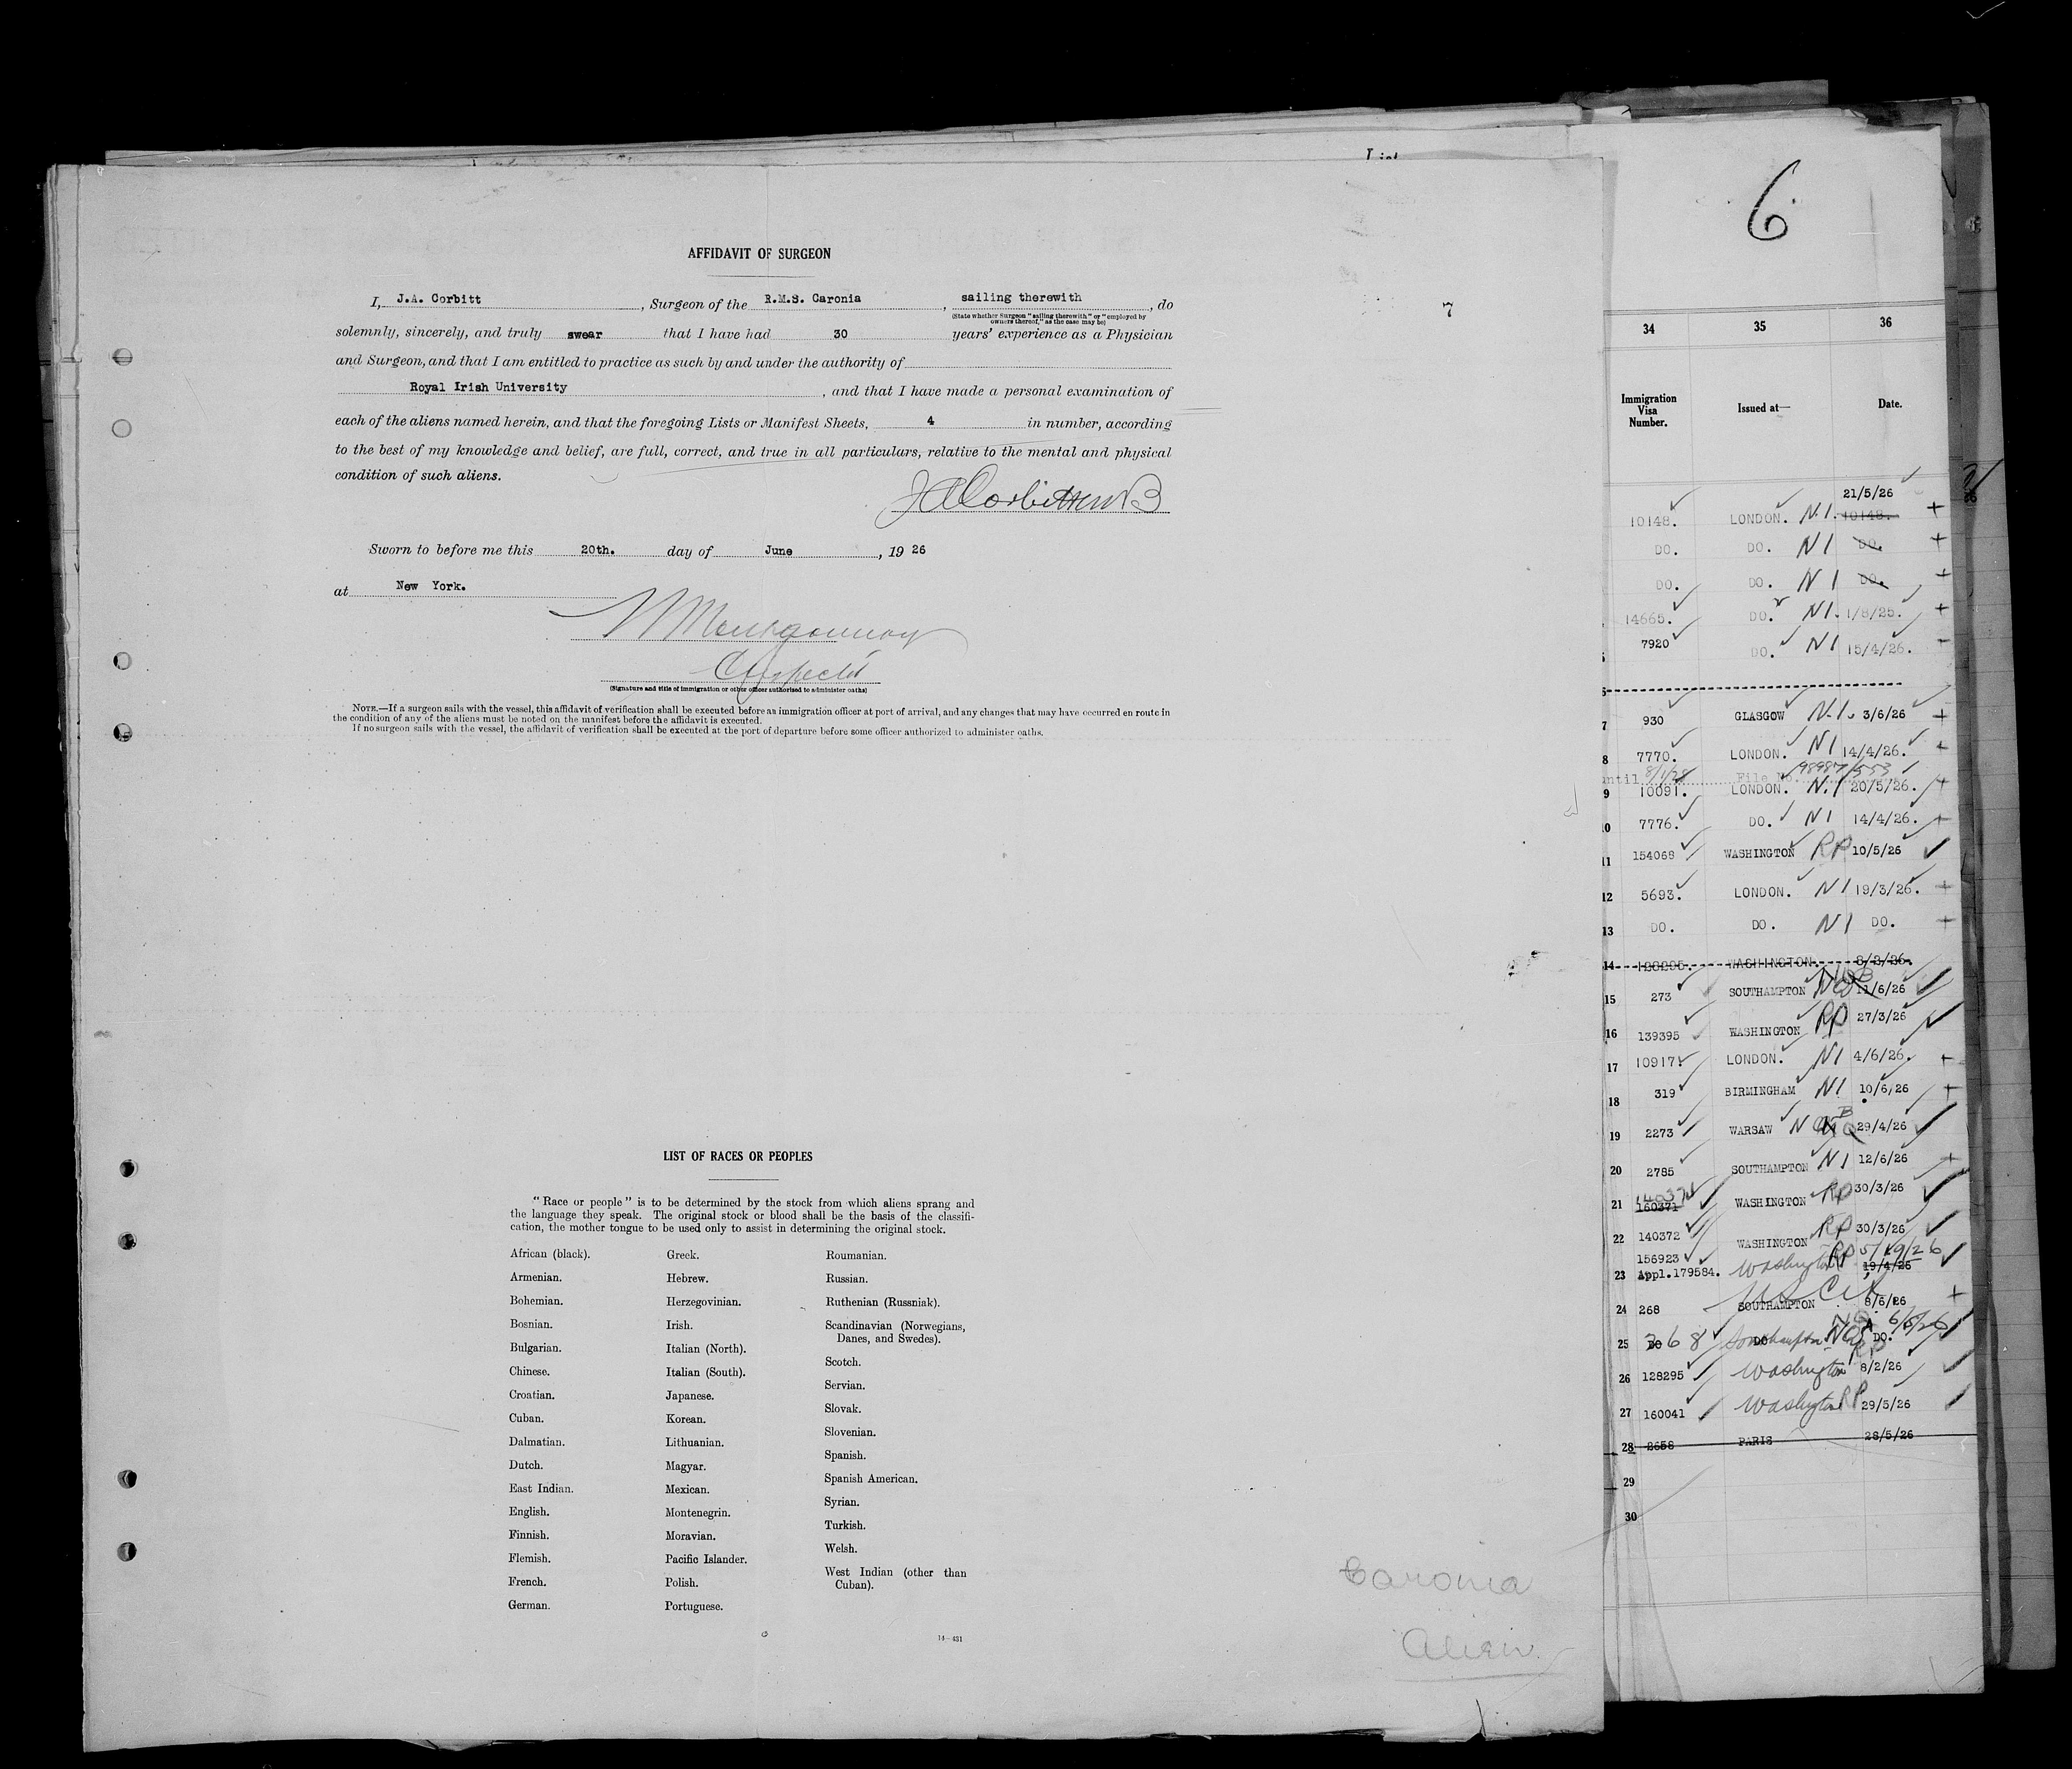 AFFIDAVIT OF SURGEON
I, J.A. Corbitt, Surgeon of the R.M.S. Caronia, sailing therewith, do
(State whether Surgeon "sailing therewith" or "employed by
owners thereof," as the case may be)
solemnly, sincerely, and truly swear that I have had 30 years' experience as a Physician
and Surgeon, and that I am entitled to practice as such by and under the authority of
Royal Irish University, and that I have made a personal examination of
each of the aliens named herein, and that the foregoing Lists or Manifest Sheets, 4 in number, according
to the best of my knowledge and belief, are full, correct, and true in all particulars, relative to the mental and physical
condition of such aliens.
JACorbitt MB
Sworn to before me this 20th. day of June, 19 26
at New York.
Montgomery
(Signature and title of immigration or other officer authorized to administer oaths)
NOTE.—If a surgeon sails with the vessel, this affidavit of verification shall be executed before an immigration officer at port of arrival, and any changes that may have occurred en route in
the condition of any of the aliens must be noted on the manifest before the affidavit is executed.
If no surgeon sails with the vessel, the affidavit of verification shall be executed at the port of departure before some officer authorized to administer oaths.
7
LIST OF RACES OR PEOPLES
"Race or people" is to be determined by the stock from which aliens sprang and
the language they speak. The original stock or blood shall be the basis of the classifi-
cation, the mother tongue to be used only to assist in determining the original stock.
African (black).
Armenian.
Bohemian.
Bosnian.
Bulgarian.
Chinese.
Croatian.
Cuban.
Dalmatian.
Dutch.
East Indian.
English.
Finnish.
Flemish.
French.
German.
Greek.
Hebrew.
Herzegovinian.
Irish.
Italian (North).
Italian (South).
Japanese.
Korean.
Lithuanian.
Magyar.
Mexican.
Montenegrin.
Moravian.
Pacific Islander.
Polish.
Portuguese.
Roumanian.
Russian.
Ruthenian (Russniak).
Scandinavian (Norwegians,
Danes, and Swedes).
Scotch.
Servian.
Slovak.
Slovenian.
Spanish.
Spanish American.
Syrian.
Turkish.
Welsh.
West Indian (other than
Cuban).
14—431
Caronia
Alien
6
34 35 36
Immigration
Visa
Number.
Issued at—
Date.
21/5/26
10148. LONDON. N.I. 10148.
DO. DO. NI DO.
DO. DO. NI DO.
14665. DO. NI. 1/8/25.
7920 DO. NI 15/4/26.
7 930 GLASGOW N.I. 3/6/26
8 7770. LONDON. NI 14/4/26.
until 8/1/28 File No. 98987/553
9 10091. LONDON. N.I 20/5/26.
10 7776. DO. NI 14/4/26.
11 154068 WASHINGTON RP 10/5/26
12 5693. LONDON. NI 19/3/26.
13 DO. DO. NI DO.
14 128295. WASHINGTON. 8/2/26.
15 273 SOUTHAMPTON 11/6/26
16 139395 WASHINGTON RP 27/3/26
17 10917. LONDON. NI 4/6/26.
18 319 BIRMINGHAM NI 10/6/26
19 2273 WARSAW 29/4/26
20 2785 SOUTHAMPTON NI 12/6/26
21 160371 WASHINGTON RP 30/3/26
22 140372 WASHINGTON RP 30/3/26
156923
23 Appl.179584. Washington RP 5/19/26
19/4/26
US Cit
24 268 SOUTHAMPTON 8/6/26
25 268 Southampton DO. 6/8/26
26 128295 Washington RP 8/2/26
27 160041 Washington RP 29/5/26
28 2658 PARIS 28/5/26
29
30